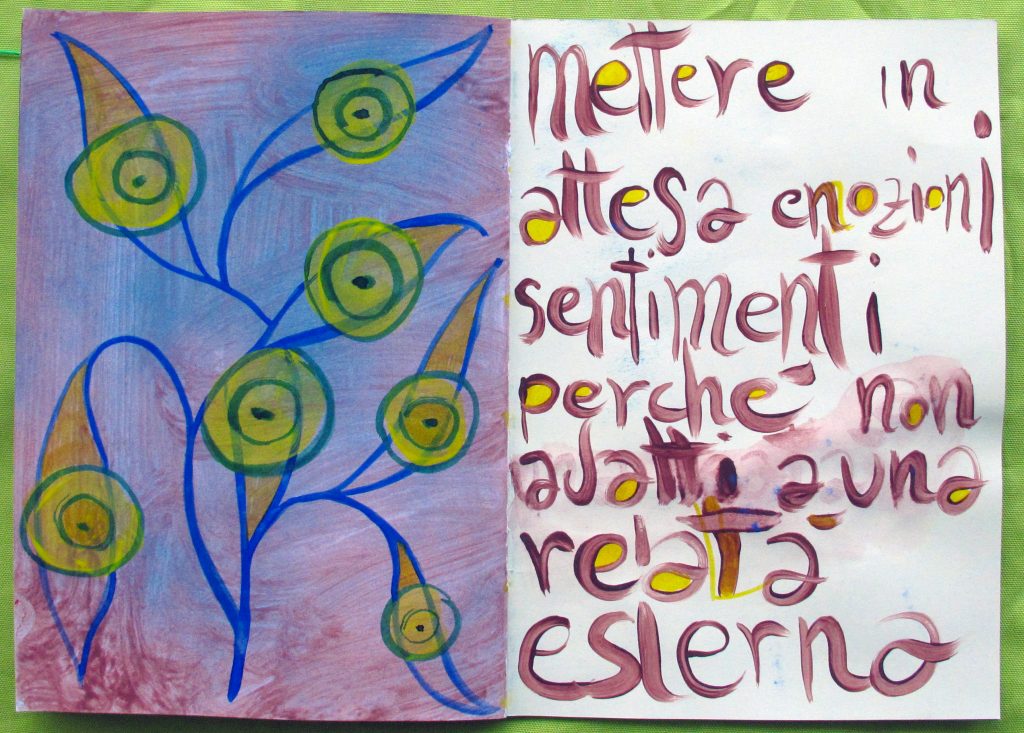 mettere in
attesa emozioni
sentimenti
perchè non
adatti a una
relatà
eslerna